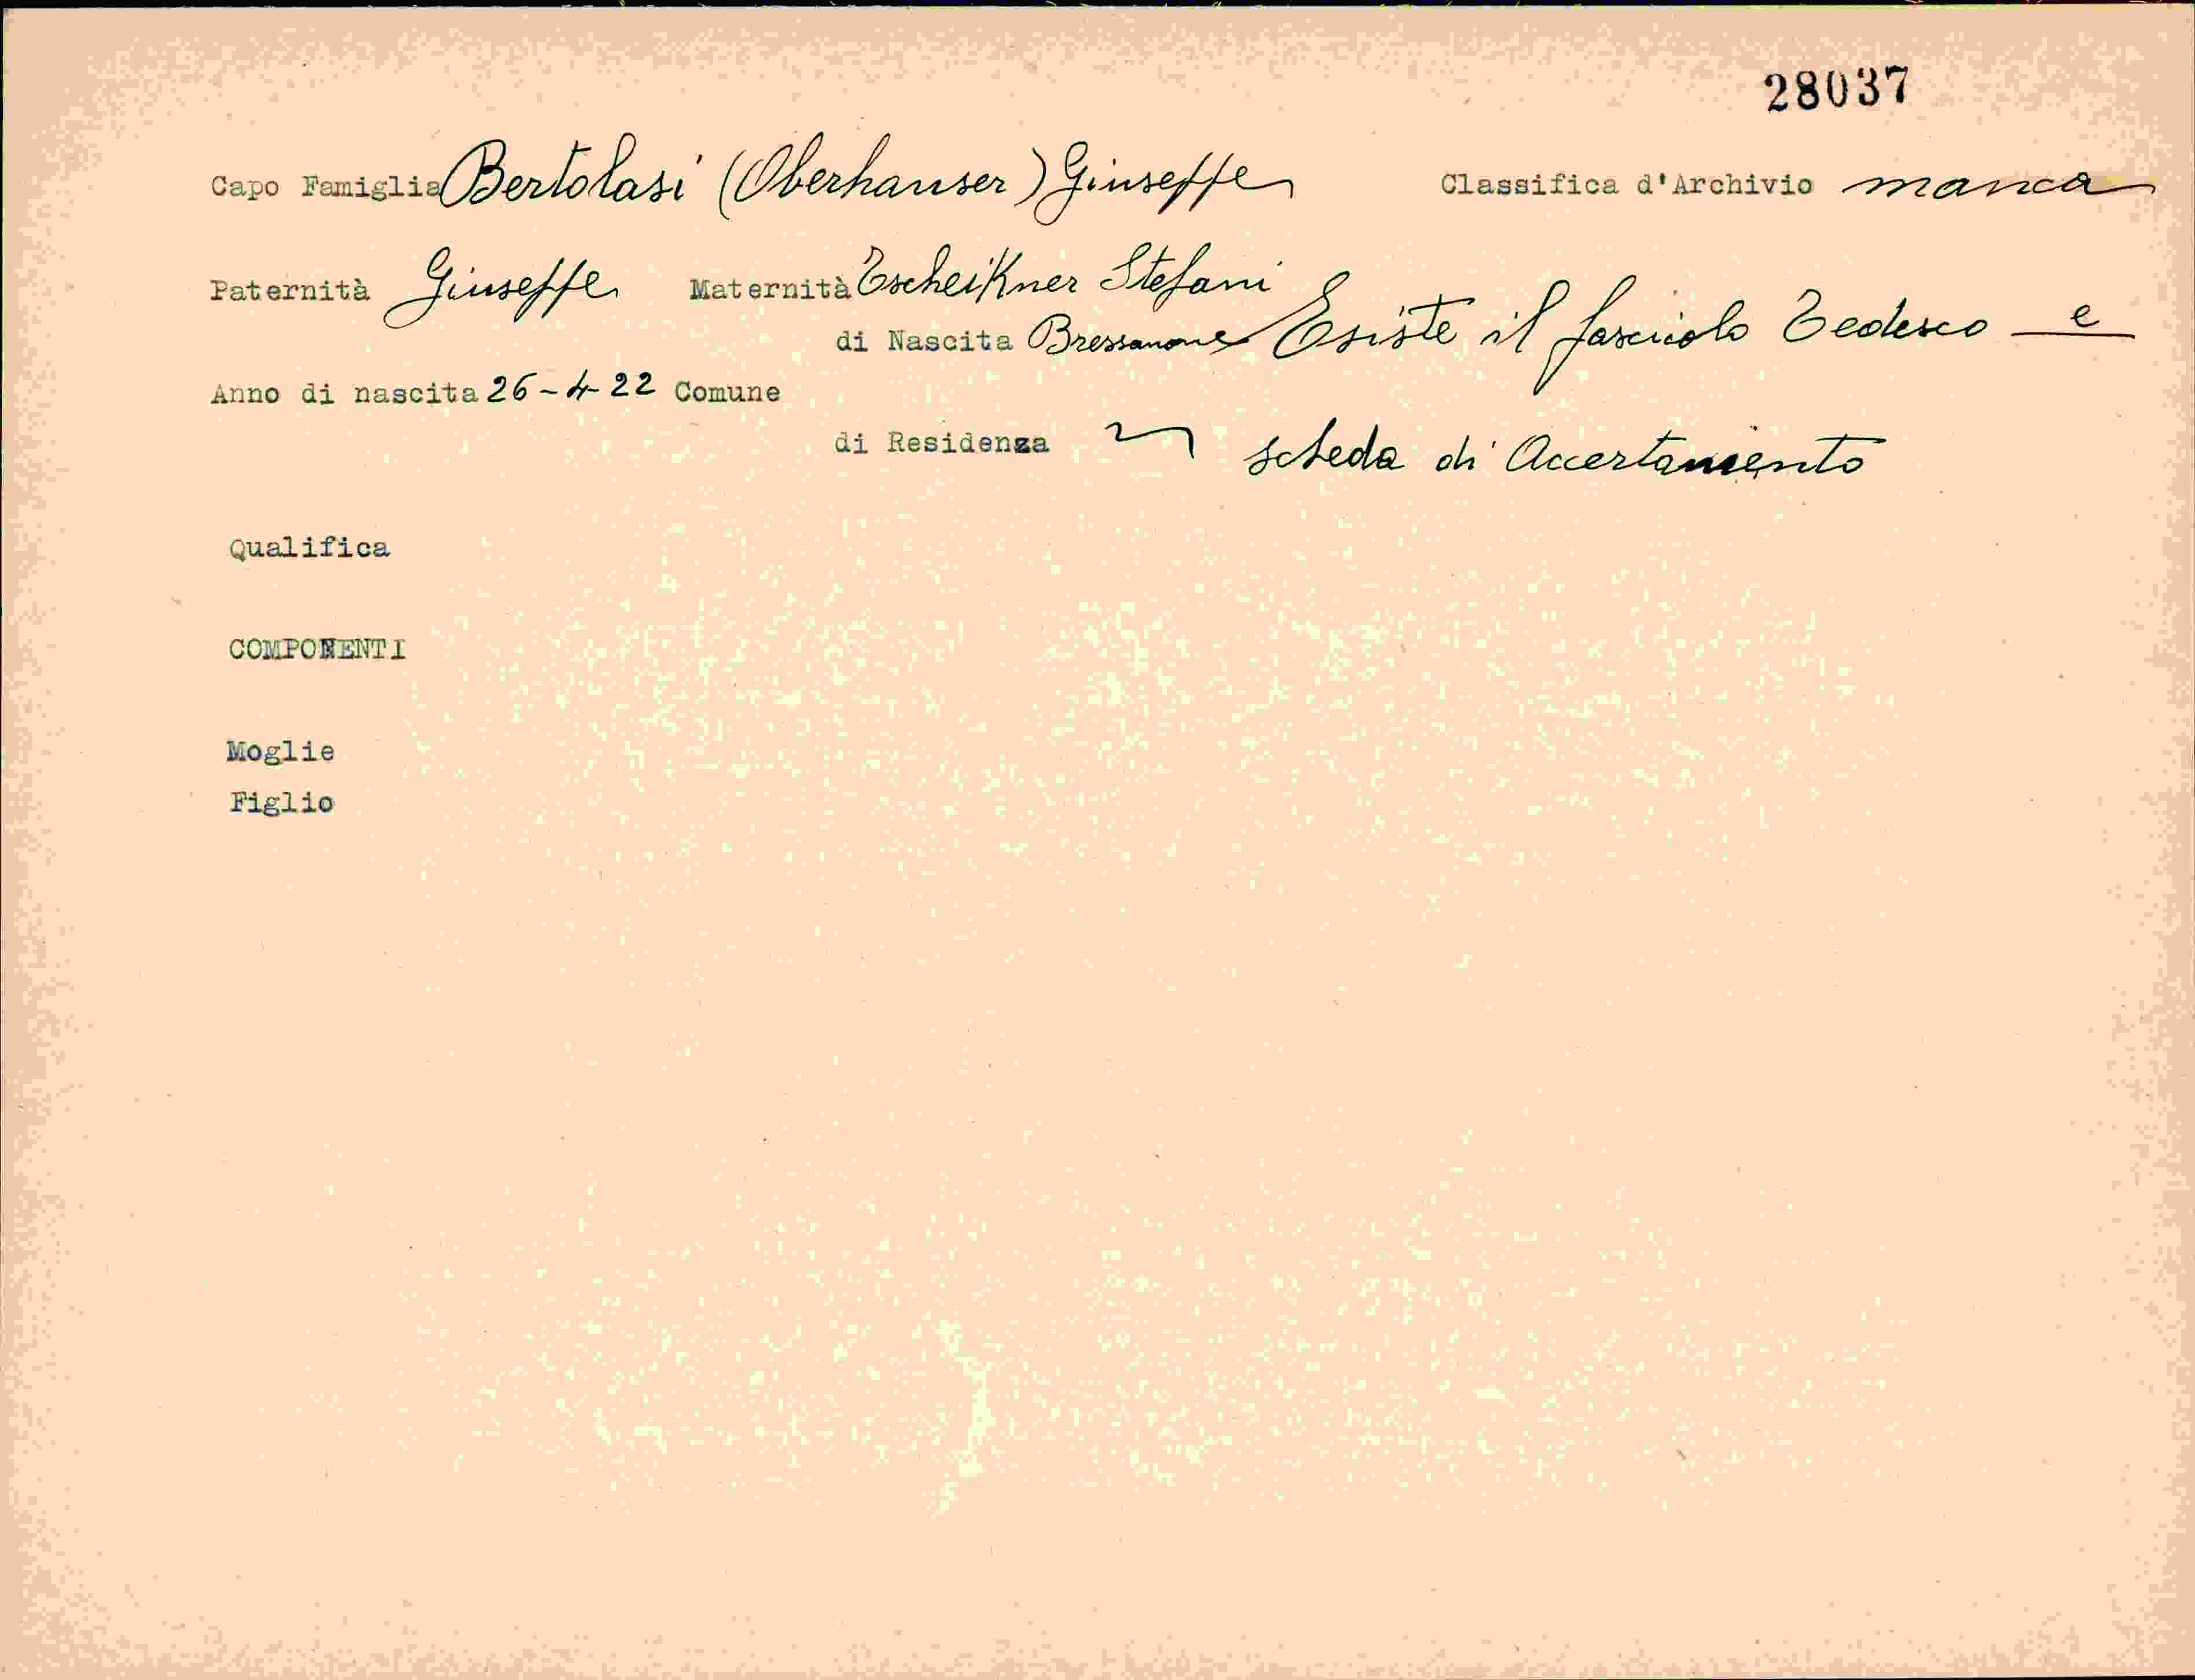 28037
Capo Famiglia Bertolasi (Oberhauser) Giuseppe Classifica d'Archivio manca
Paternità Giuseppe Maternità Tscheikner Stefani
di Nascita Bressanone Esiste il fascicolo Tedesco e
Anno di nascita 26-4-22 Comune
di Residenza scheda di Accertamento
Qualifica
COMPONENTI
Moglie
Figlio